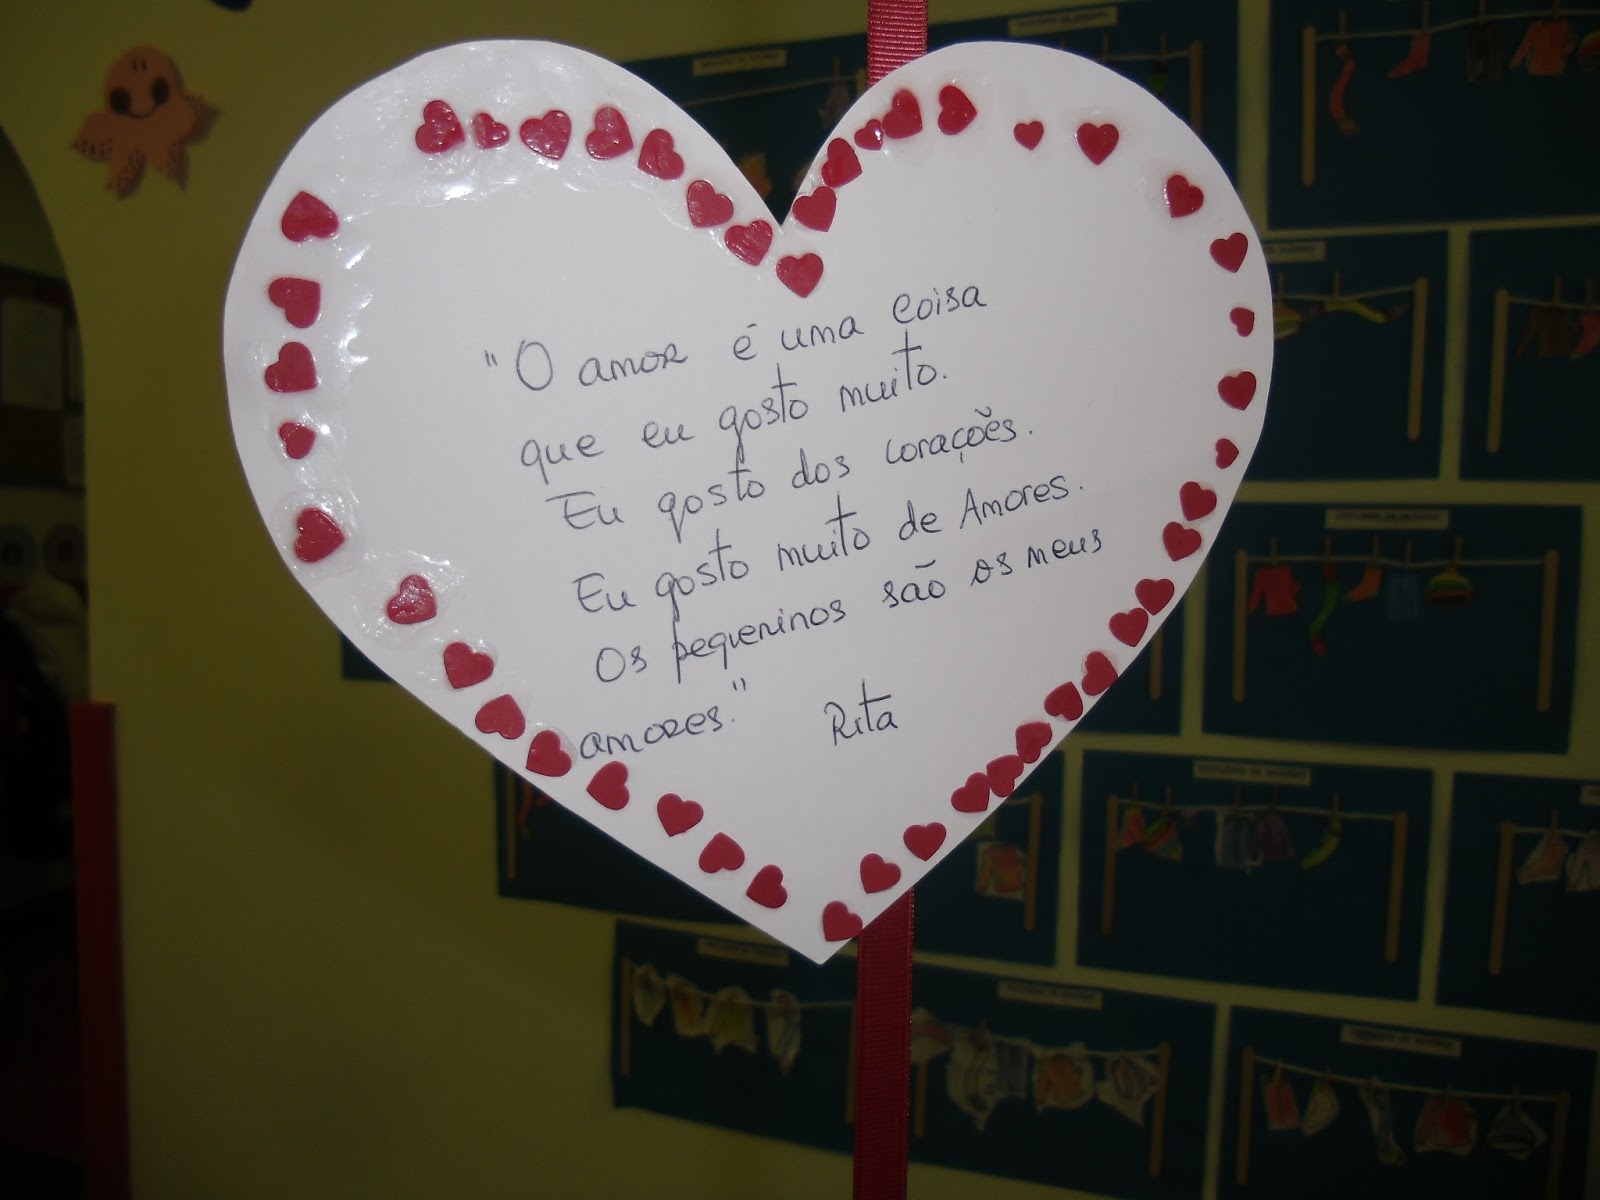 "O amor é uma coisa
que eu gosto muito.
Eu gosto dos corações.
Eu gosto muito de Amores.
Os pequeninos são os meus
amores."
Rita